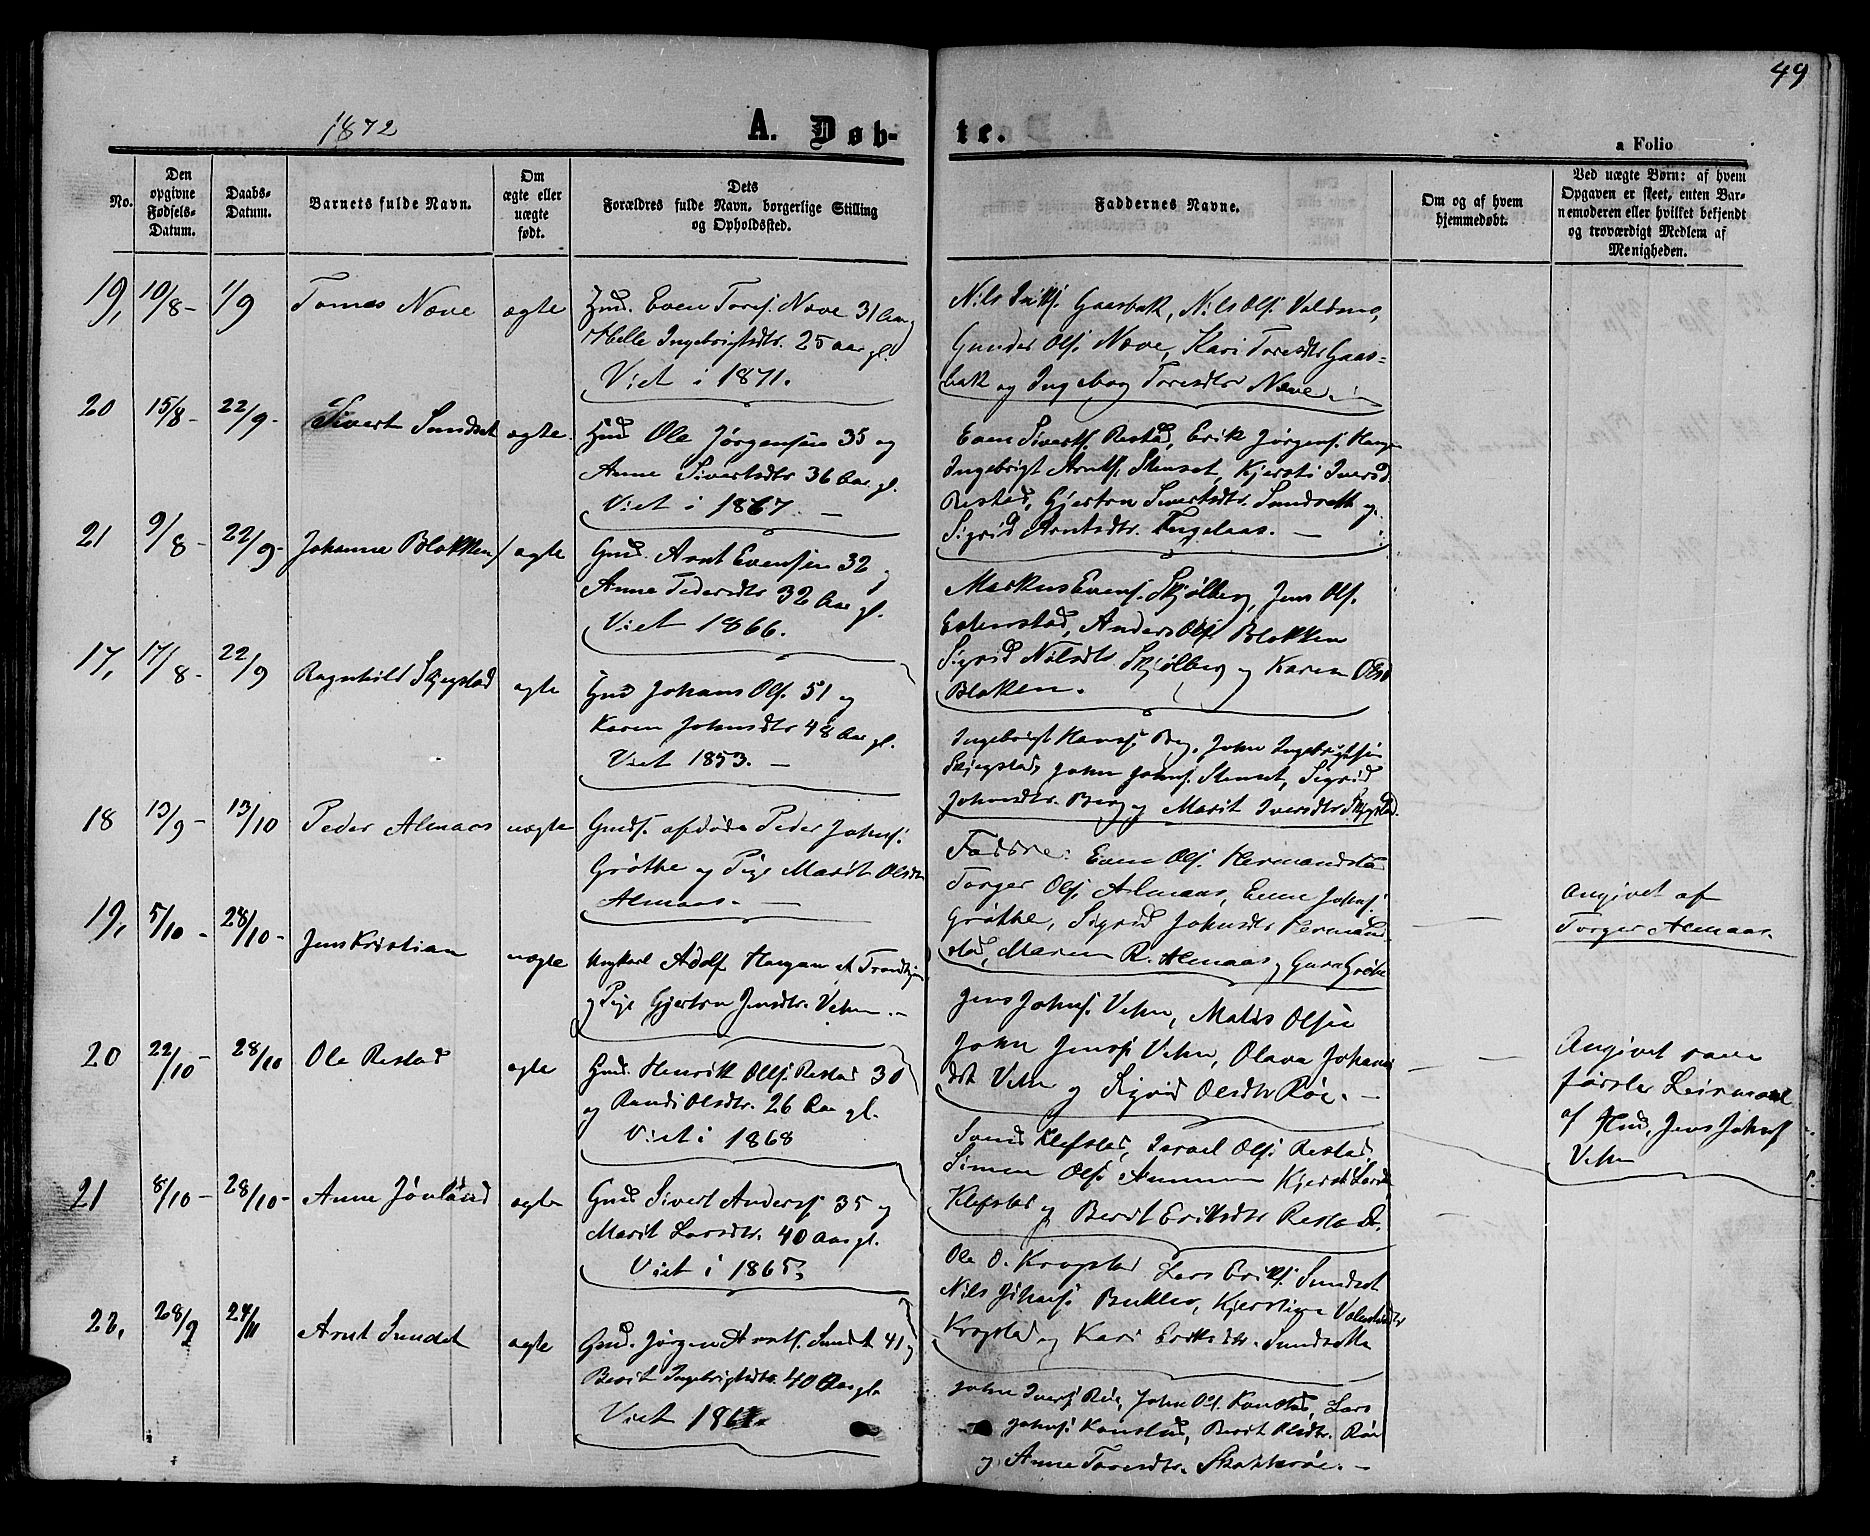 49
1872
A. Døb-
te.
a Folio
No.
Den
opgivne
Fødsels-
Datum.
Daabs-
Datum.
Barnets fulde Navn.
Om
ægte eller
uægte
født.
Dets
Forældres fulde Navn, borgerlige Stilling
og Opholdssted.
Faddernes Navne.
Om og af hvem
hjemmedøbt.
Ved uægte Børn: af hvem
Opgaven er skeet, enten Bar-
nemoderen eller hvilket bekjendt
og troværdigt Medlem af
Menigheden.
19, 10/8- 1/9 Tomas Næve ægte
Gmd. Even Tores. Næve 31 Aar og
Helle Ingebrigtsdtr. 25 aar gl.
Viet i 1871.
Nils Gaasbak, Nils Ols.
Gunder Ols. Næve, Kari Toresdtr Gaas-
bak og Ingebog Toresdtr Næve.
20 15/8- 22/9- Sivert Sundset ægte.
Gmd Ole Jørgensen 35 og
Anne Sivertsdtr 36 Aar gl.
Viet i 1867. —
Even Siverts. Restad, Erik Jørgens.
Ingebrigt Arnts. Stenset, Kjersti Iversd
Restad, Gjertru Sivertsdtr Sundseth og
Sigrid Arntsdtr. —
21 9/8- 22/9- Johanne Blokken ægte
Gmd. Arnt Evensen 32 og
Anne Pedersdtr 32 Aar gl.
Viet 1866.
Markus Evens. Skjølberg, Jens Ols.
Anders Ols. Blokken
Sigrid Nilsdtr Skjølberg og Karen Olsd
Blokken.
17, 17/8- 22/9 Ragnhild Skjegstad ægte
Gmd Johans Ols. 51 og
Karen Johnsdtr 48 Aar gl.
Viet 1853. —
Ingebrigt Hans. Berg, John Ingebrigtsen
Skjegstad, John Johns. Stenset, Sigrid
Johnsdtr. Berg og Marit Iversdtr Skjegstad.
18 13/9- 13/10 Peder Almaas uægte
Gmds. afdøde Peder Johns.
Grøthe og Pige Marit Olsdtr
Almaas. —
Faddre: Even Ols. Hermandstad
Torger Ols. Almaas, Even Johns.
Grøthe, Sigrid Johnsdtr Hermand-
stad, Maren R. Almaas og Guru Grøthe
Angivet af
Torger Almaas.
19, 5/10- 28/10- Jens Kristian uægte
Ungkarl Adolf Haugan af Trondhjem
og Pige Gjertru Jensdtr. Vehn. —
Jens Johns. Vehn, Olsen
John Jenss. Vehn, Olava Johans
dtr Vehn og Sigrid Olsdtr Røe. —
Angivet
af Gmd, Jens Johns.
Vehn
20 22/10- 28/10 Ole Restad ægte
Gmd. Henrik Ols. Restad 30
og Randi Olsdtr. 26 Aar gl.
Viet i 1868
Klefstad, Israel Ols. Restad,
Simen Ols. Kjersti Larsdtr
Klefstad og Berit Eriksdtr Restad.
21 8/10- 28/10- Anne ægte
Gmd Sivert Anders. 35 og
Marit Larsdtr. 40 Aar gl.
Viet i 1865.
Ole O. Krogstad Lars Eriks. Sundset
Nils Johans. Kjerstine
Krogstad og Kari Eriksdtr. Sundsetth
22, 28/9 24/11 Arnt Sundet ægte
Gmd. Jørgen Arnts. Sundet 41 og
Berit Ingebrigtsdtr. 40 Aar gl
Viet
John Ivers. Røe, John Ols. Kanstad, Lars
Johns. Kanstad, Berit Olsdtr. Røe
og Anne Toresdtr. —